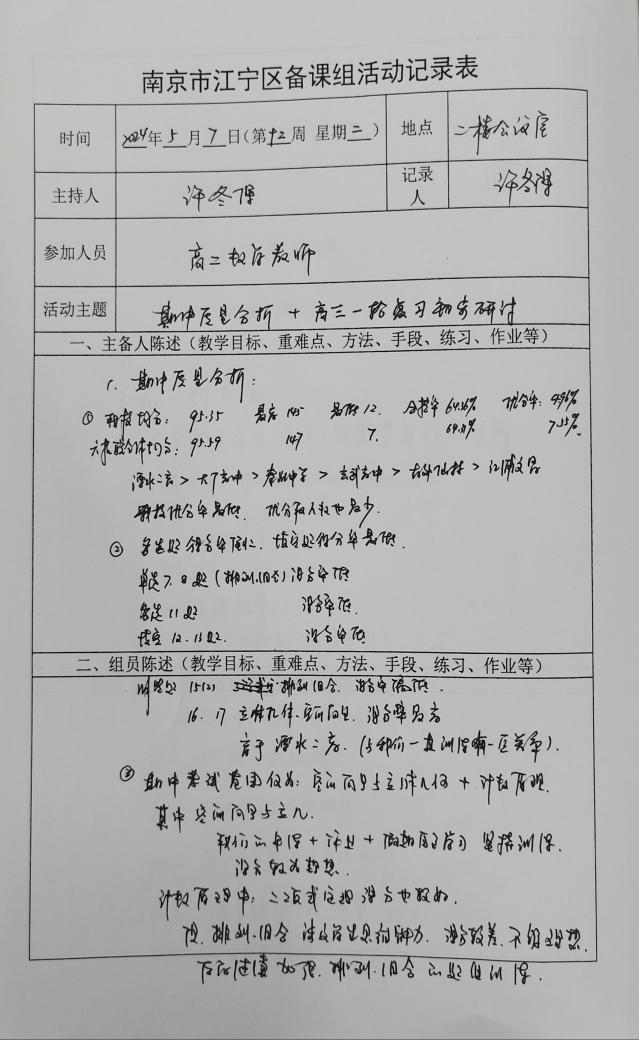 南京市江宁区备课组活动记录表
时间 2024年5月7日(第12周 星期二) 地点 二楼会议室
主持人 许冬保 记录人 许冬保
参加人员 高二数学教师
活动主题 期中质量分析 + 高三一轮复习初步研讨
一、主备人陈述(教学目标、重难点、方法、手段、练习、作业等)
1. 期中质量分析:
① 我校均分: 95.35 最高 145 最低 12. 合格率 64.36% 优分率: 4.96%
六校整体均分: 95.59 147 7. 7.55%
溧水二高 > 大厂高中 > 秦淮中学 > 玄武高中 > > 江浦文昌
我校优分率最低. 优分段人数也最少.
② 多选题得分率倒二. 填空题得分率最低.
单选7.8题(排列.组合)得分率低
多选11题 得分率低.
填空12.13题. 得分率低
二、组员陈述(教学目标、重难点、方法、手段、练习、作业等)
解答题 15(2) 排列组合. 得分率偏低.
16. 17 立体几何.空间向量. 得分率最高
高于溧水二高. (与我们一直训练有一定关系).
③ 期中考试范围仅为: 空间向量与立体几何 + 计数原理.
其中空间向量与立几.
我们 + 作业 + 假期自主学习 坚持训练.
得分较为理想.
计数原理中, 二项式定理得分也较好.
但, 排列.组合 涉及学生思维能力. 得分较差. 不够理想.
后应继续加强. 排列.组合 的题组训练.